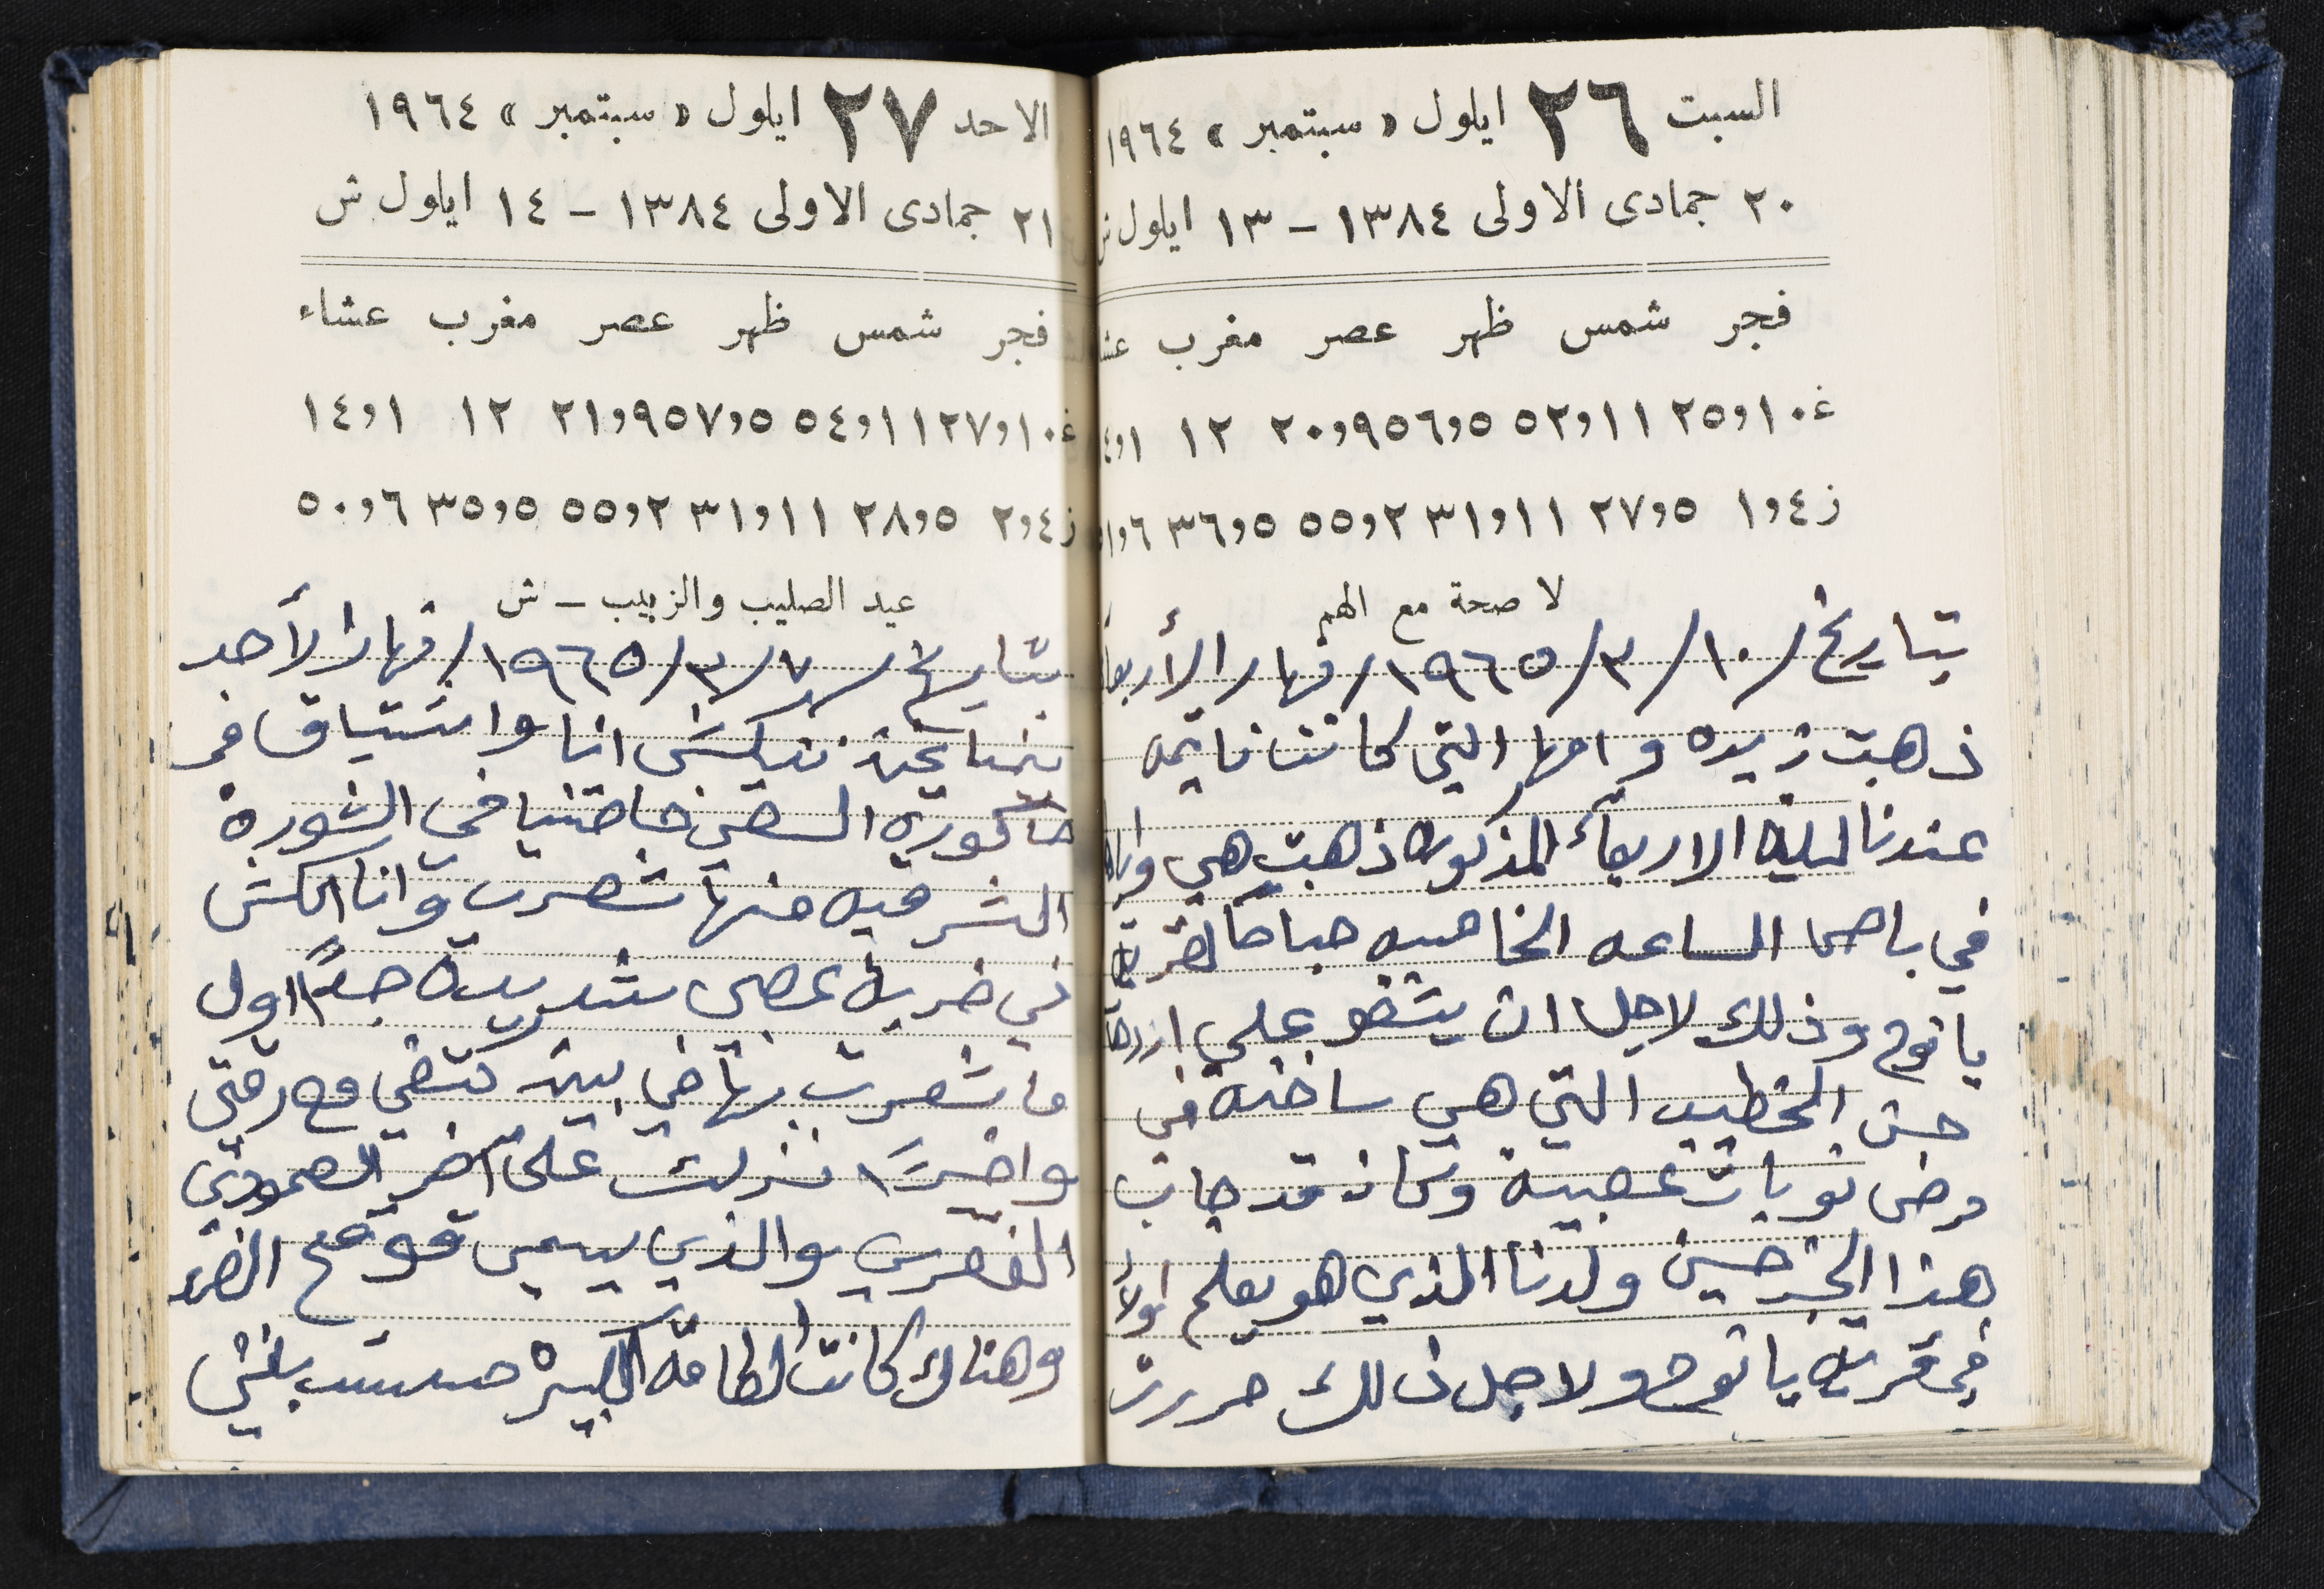 السبت ٢٦ ايلول « سبتمبر » ١٩٦٤
٢٠ جمادى الاولى ١٣٨٤ - ١٣ ايلول ش
فجر شمس ظهر عصر مغرب عشا
غ ١٠و٢٥ ١١و٥٢ ٥و٥٦ ٩و٢٠ ١٢ ١و
ز ٤و١ ٥و٢٧ ١١و٣١ ٢و٥٥ ٥و٣٦ ٦و
لا صحة مع الهم
بتاريخ /١٠/٣/١٩٦٥/ نهار الأربعاء
ذهبت زبيده وامها التي كانت نايمه
عندنا ليلة الاربعاء المذكوره ذهبت هي واياها
في باص الساعه الخامسه صباحاً لقرية
يانوح وذلك لاجل ان يشفو علي
حسن الخطيب التي هي ساخنه في
مرض نوبات عصبية وكان قد جاب
هذا الخبر حسين ولدنا الذي هو يعلم اولاً
في قرية يانوح ولاجل ذلك حررت
الاحد ٢٧ ايلول « سبتمبر » ١٩٦٤
٢١ جمادى الاولى ١٣٨٤ - ١٤ ايلول ش
فجر شمس ظهر عصر مغرب عشاء
غ ١٠و٢٧ ١١و٥٤ ٥و٥٧ ٩و٢١ ١٢ ١و١٤
ز ٤و٢ ٥و٢٨ ١١و٣١ ٢و٥٥ ٥و٣٥ ٦و٥٠
عيد الصليب والزبيب - ش
بتاريخ /٧/٣/١٩٦٥/ نهار الأحد
بينما نحن ننكش انا واشتياق في
حاكورة خاصتنا في
الشرقيه منها شعرت وانا انكش
في ضربة عصبي شديده جداً اول
ما شعرت بها في بين كتفي مع رقبتي
واخيراً نزلت على آخر العمودي
الفقري والذي يسمى
وهناك كانت الطامة الكبيره حسيت بنفسي